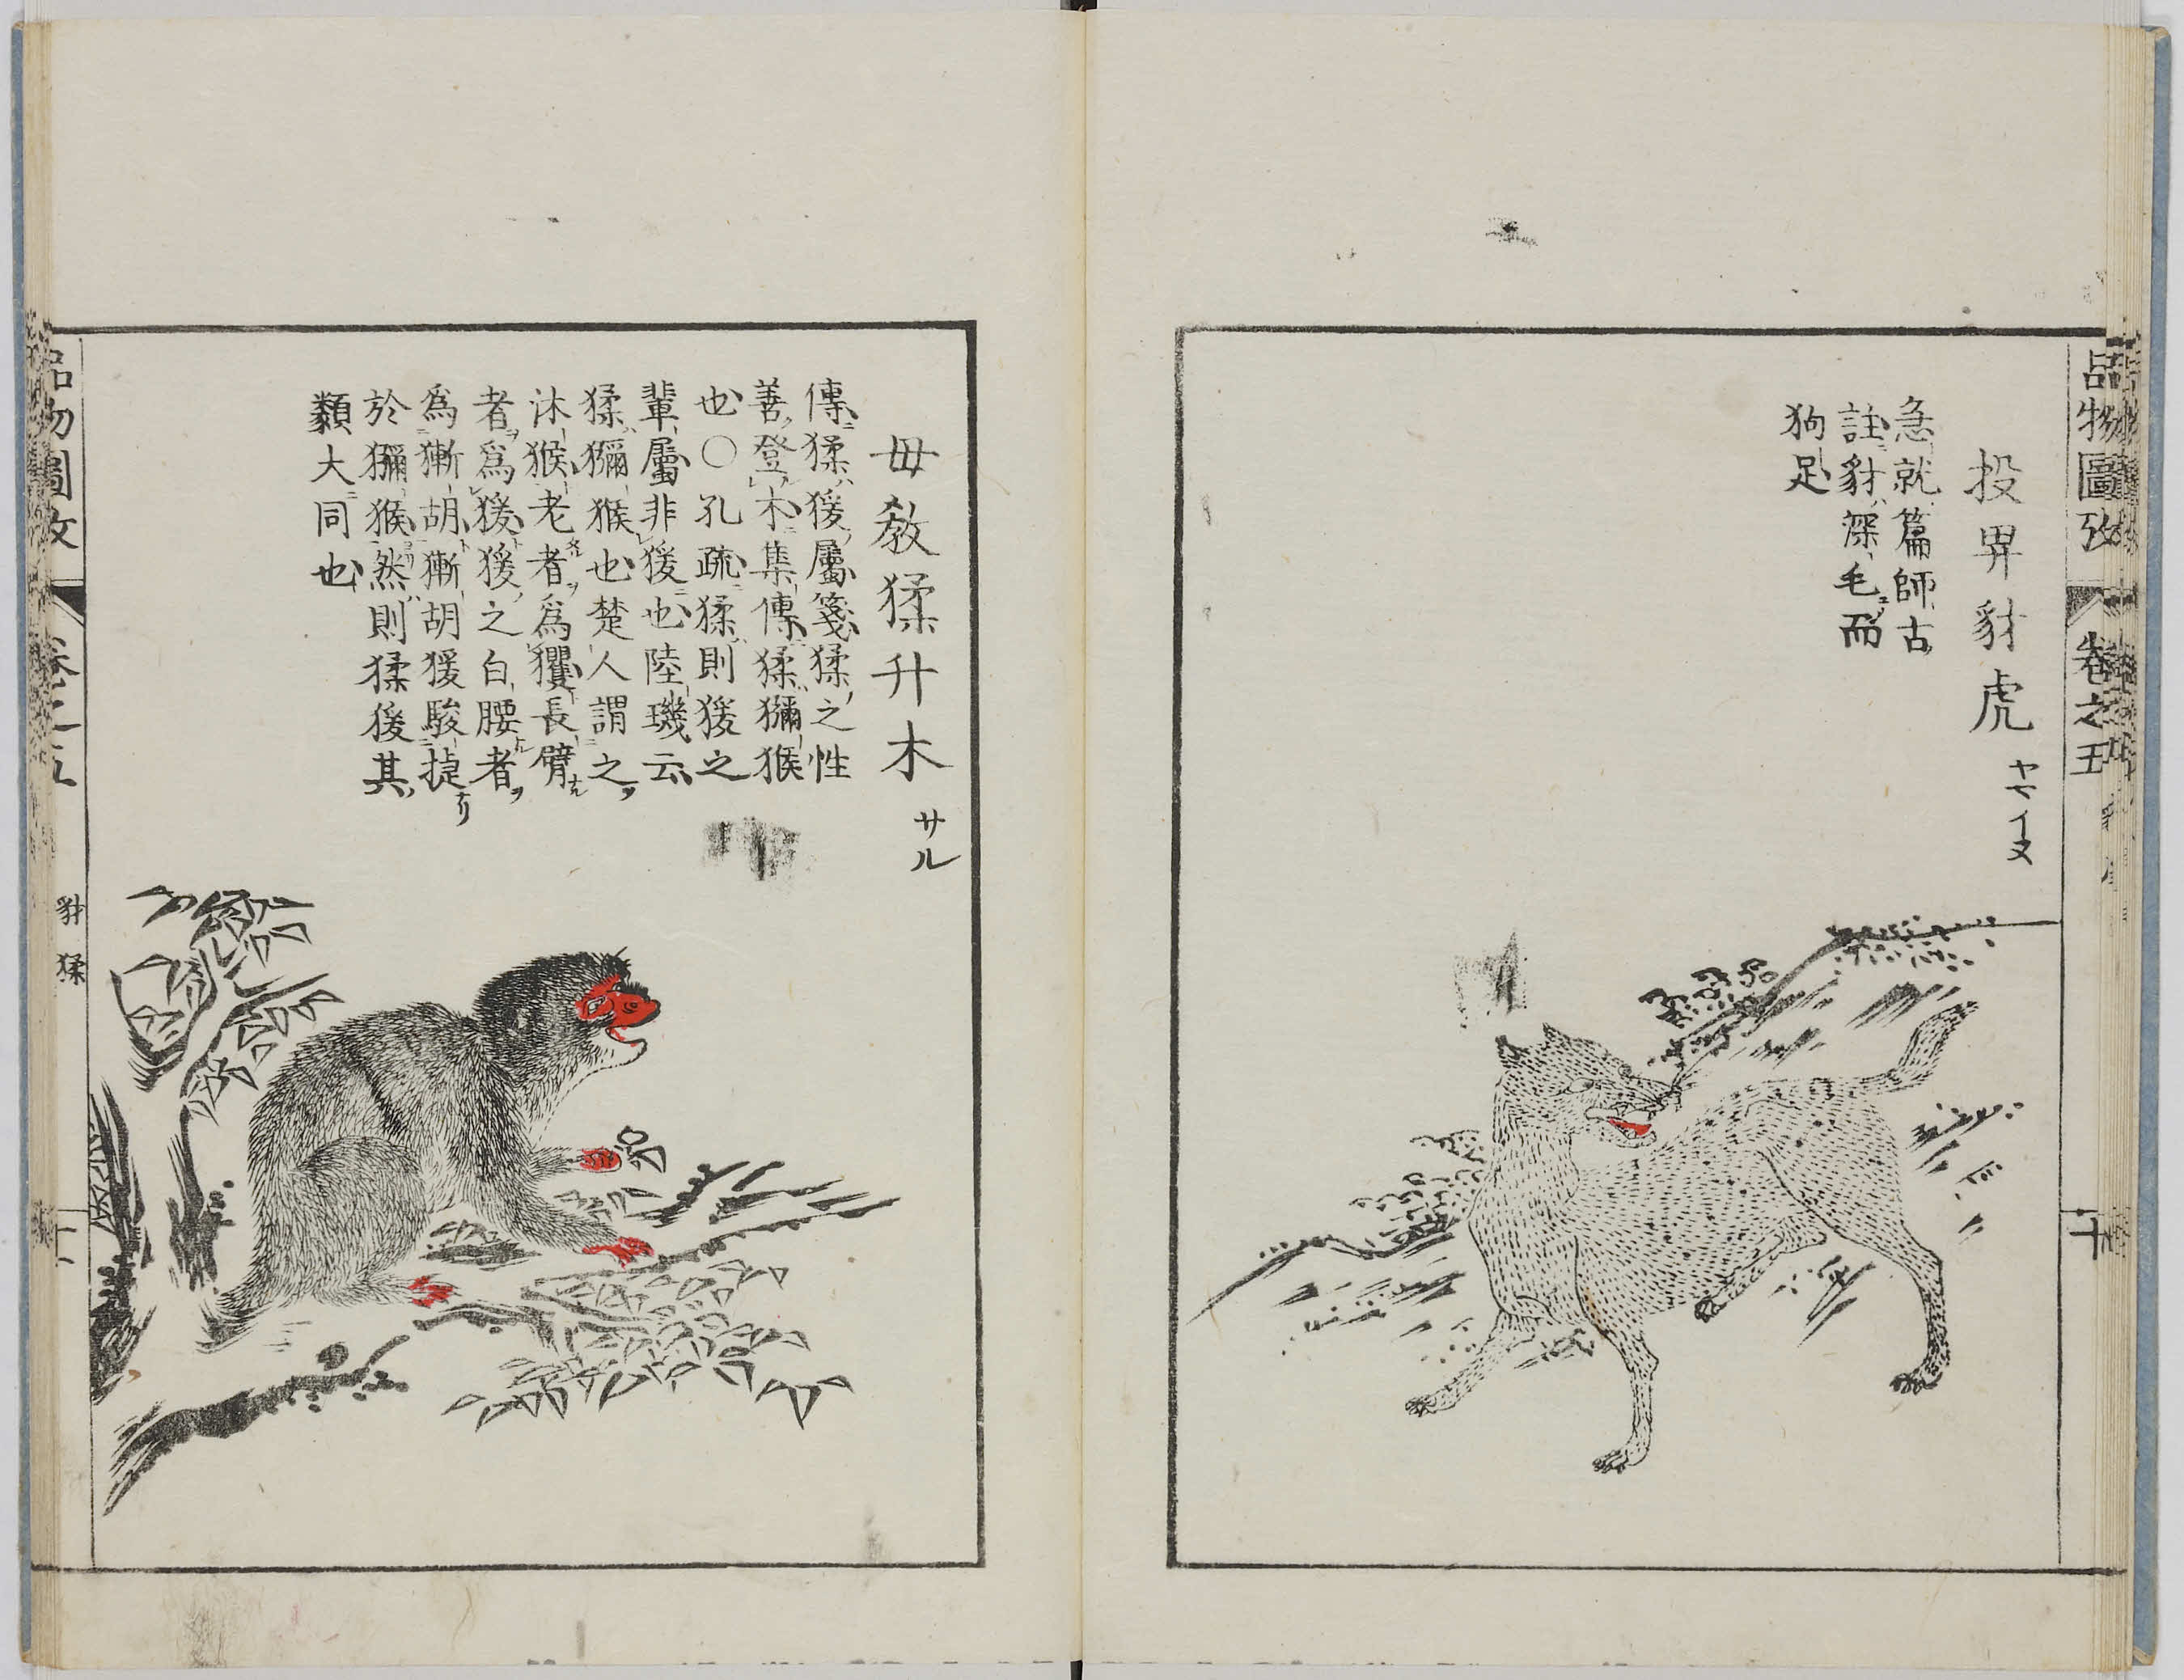 品物圖攷 卷之五
十
投畀豺虎 ヤマイヌ
急就篇師古
註豺深毛而
狗足
毋教猱升木 サル
傳猱猨屬箋猱之性
善登木集傳猱獼猴
也○孔疏猱則猨之
輩屬非猨也陸璣云
猱獼猴也楚人謂之
沐猴老者爲玃長臂
者爲猨猨之白腰者
爲獑胡獑胡猨駿捷
於獼猴然則猱猨其
類大同也
品物圖攷 卷之五 豺 猱